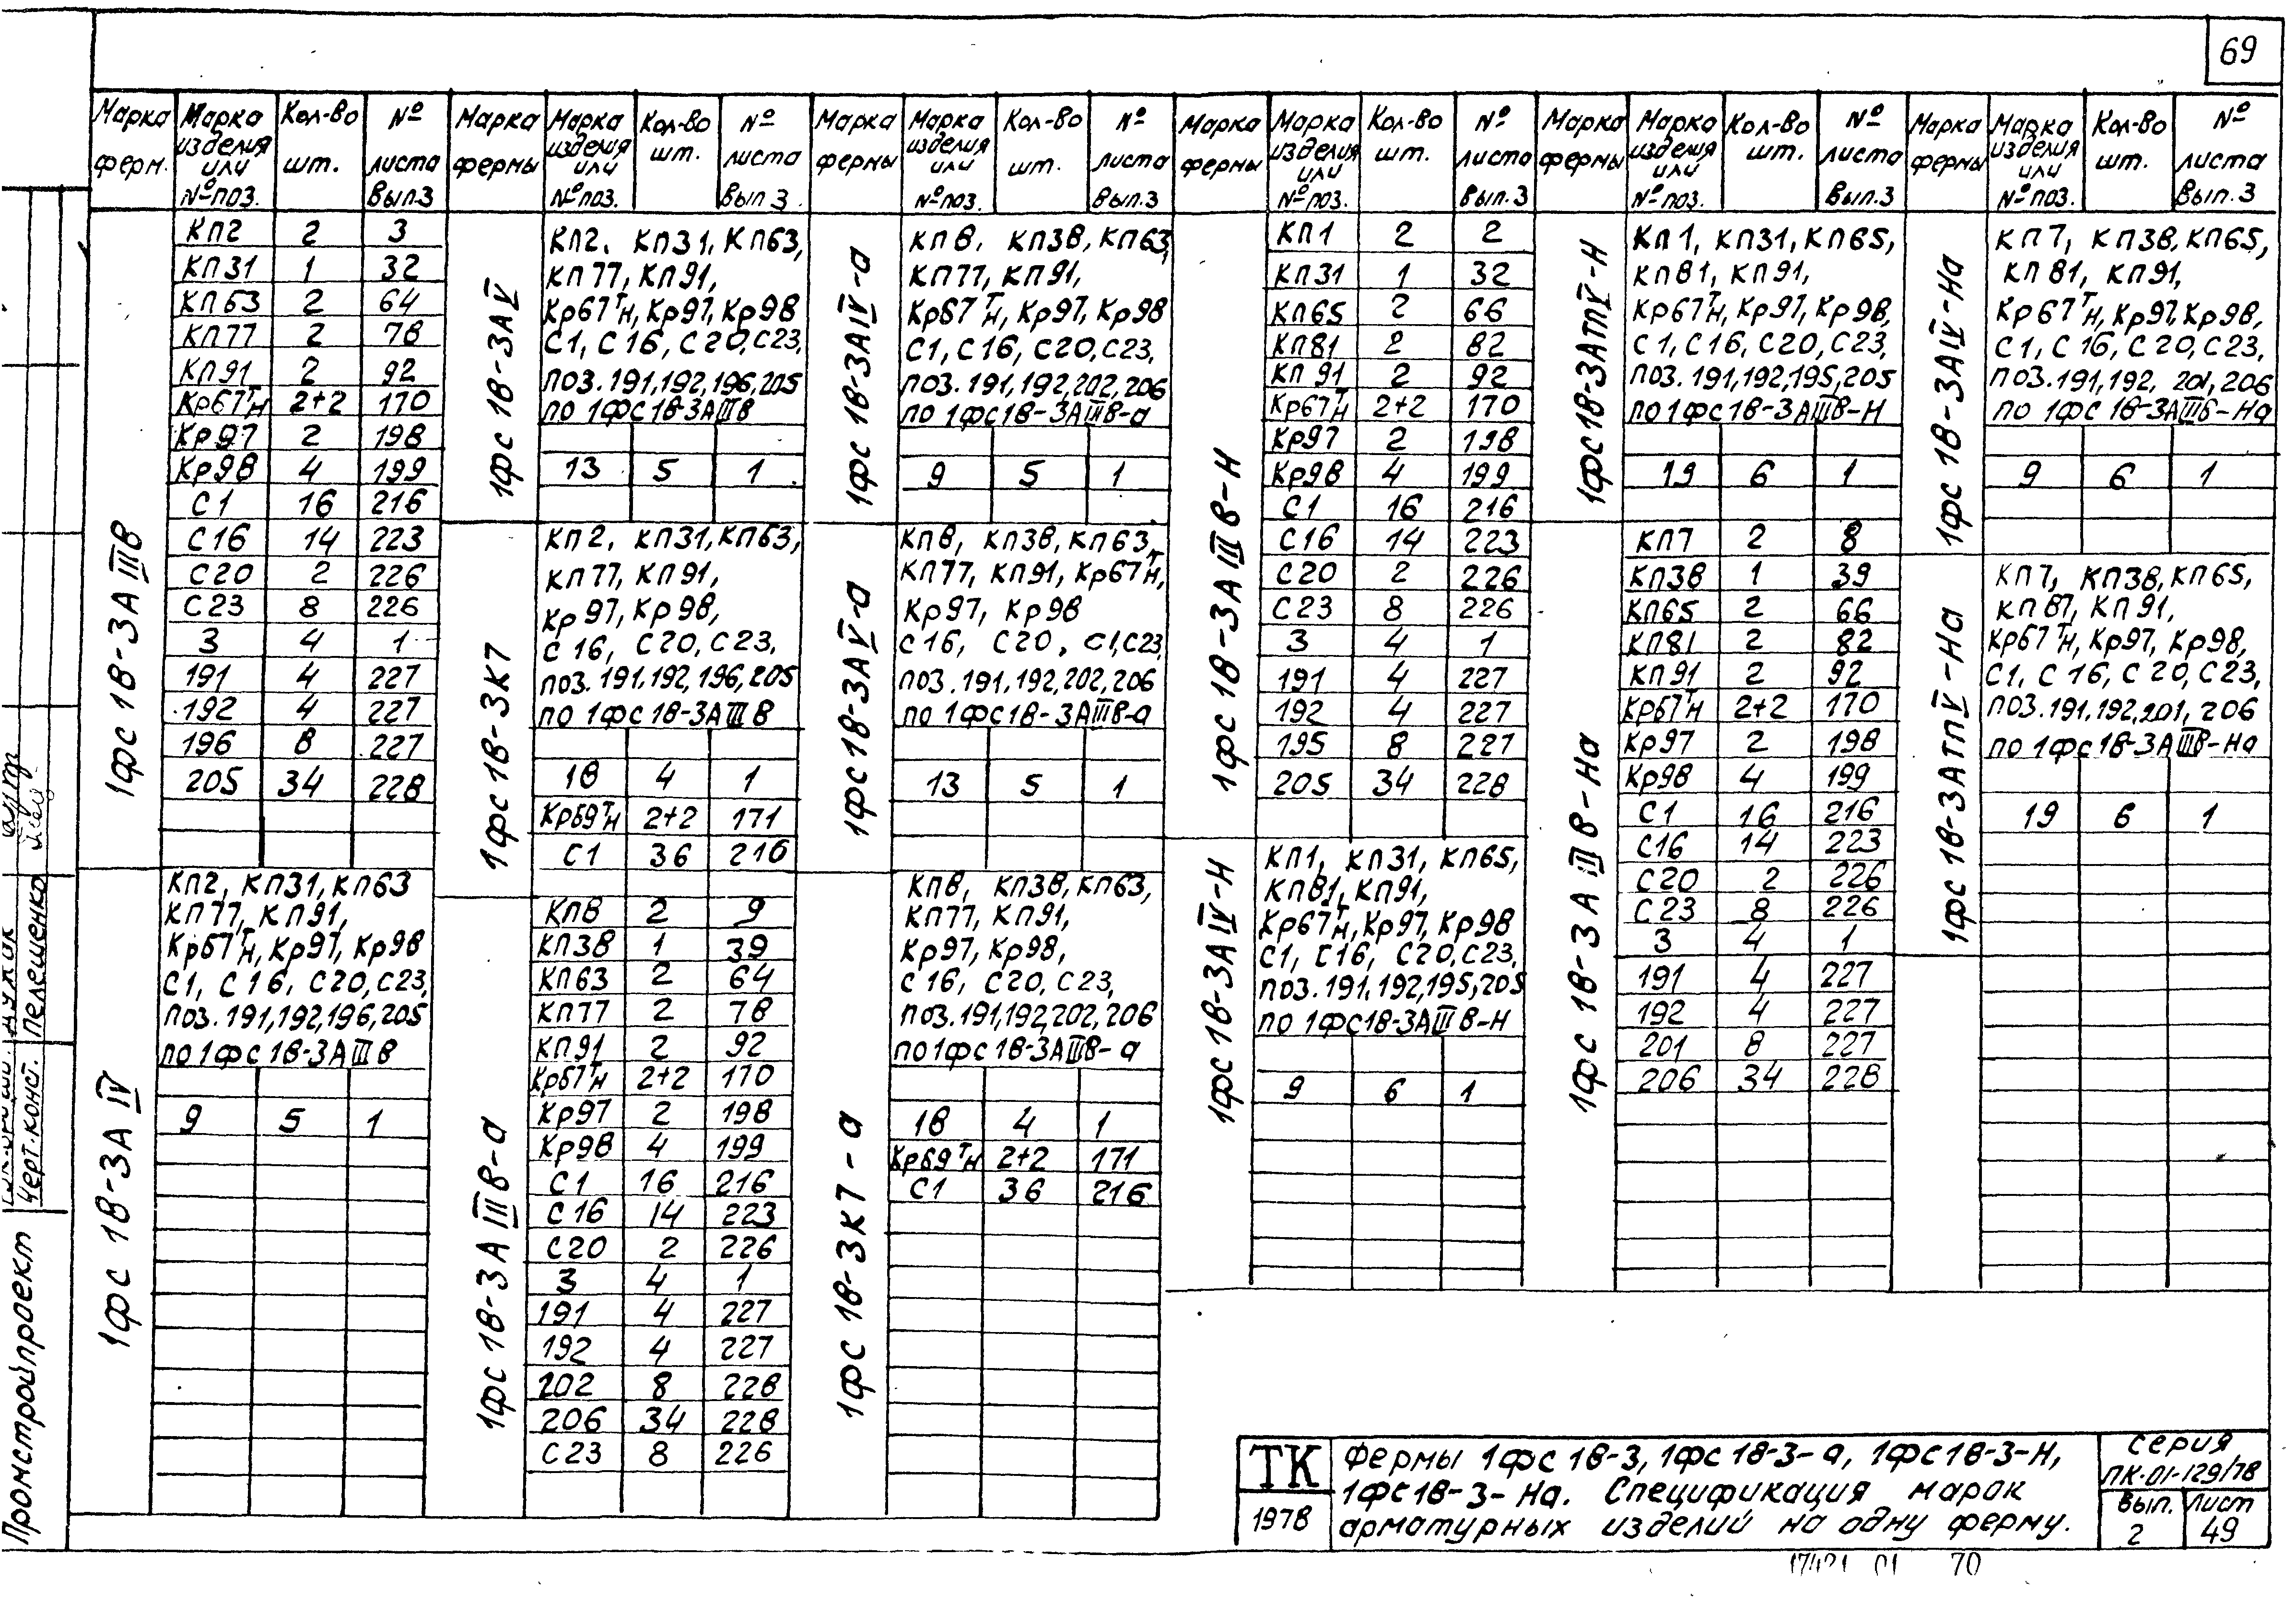 69
Марка ферм. Марка изделия или №поз. Кол-во шт. № листа Вып.3
1фс 18-3АIIIв
КП2 2 3
КП31 1 32
КП63 2 64
КП77 2 78
КП91 2 92
Кр67тн 2+2 170
Кр97 2 198
Кр98 4 199
С1 16 216
С16 14 223
С20 2 226
С23 8 226
3 4 1
191 4 227
192 4 227
196 8 227
205 34 228
1фс 18-3АIV
КП2, КП31, КП63
КП77, КП91,
Кр67тн, Кр97, Кр98
С1, С16, С20, С23,
поз. 191,192,196,205
по 1фс18-3АIIIв
9 5 1
Марка фермы Марка изделия или №поз. Кол-во шт. № листа Вып.3
1фс 18-3АV
КП2, КП31, КП63,
КП77, КП91,
Кр67тн, Кр97, Кр98
С1, С16, С20, С23,
поз. 191,192,196,205
по 1фс18-3АIIIв
13 5 1
1фс 18-3К7
КП2, КП31, КП63,
КП77, КП91,
Кр97, Кр98,
С16, С20, С23,
поз. 191,192,196,205
по 1фс18-3АIIIв
18 4 1
Кр69тн 2+2 171
С1 36 216
1фс 18-3АIIIв-а
КП8 2 9
КП38 1 39
КП63 2 64
КП77 2 78
КП91 2 92
Кр67тн 2+2 170
Кр97 2 198
Кр98 4 199
С1 16 216
С16 14 223
С20 2 226
3 4 1
191 4 227
192 4 227
202 8 228
206 34 228
С23 8 226
Марка фермы Марка изделия или №поз. Кол-во шт. № листа Вып.3
1фс 18-3АIV-а
КП8, КП38, КП63,
КП77, КП91,
Кр67тн, Кр97, Кр98
С1, С16, С20, С23,
поз. 191,192,202,206
по 1фс18-3АIIIв-а
9 5 1
1фс18-3АV-а
КП8, КП38, КП63,
КП77, КП91, Кр67тн,
Кр97, Кр98
С16, С20, С1, С23,
поз. 191,192,202,206
по 1фс18-3АIIIв-а
13 5 1
1фс 18-3К7-а
КП8, КП38, КП63,
КП77, КП91,
Кр97, Кр98,
С16, С20, С23,
поз. 191,192,202,206
по 1фс18-3АIIIв-а
18 4 1
Кр69тн 2+2 171
С1 36 216
Марка фермы Марка изделия или №поз. Кол-во шт. № листа Вып.3
1фс 18-3АIIIв-Н
КП1 2 2
КП31 1 32
КП65 2 66
КП81 2 82
КП91 2 92
Кр67тн 2+2 170
Кр97 2 198
Кр98 4 199
С1 16 216
С16 14 223
С20 2 226
С23 8 226
3 4 1
191 4 227
192 4 227
195 8 227
205 34 228
1фс18-3АIV-Н
КП1, КП31, КП65,
КП81, КП91,
Кр67тн, Кр97, Кр98
С1, С16, С20, С23,
поз. 191,192,195,205
по 1фс18-3АIIIв-Н
9 6 1
Марка фермы Марка изделия или №поз. Кол-во шт. № листа Вып.3
1фс18-3АтпV-Н
КП1, КП31, КП65,
КП81, КП91,
Кр67тн, Кр97, Кр98,
С1, С16, С20, С23,
поз. 191,192,195,205
по 1фс18-3АIIIв-Н
19 6 1
1фс 18-3АIIIв-На
КП7 2 8
КП38 1 39
КП65 2 66
КП81 2 82
КП91 2 92
Кр67тн 2+2 170
Кр97 2 198
Кр98 4 199
С1 16 216
С16 14 223
С20 2 226
С23 8 226
3 4 1
191 4 227
192 4 227
201 8 227
206 34 228
Марка фермы Марка изделия или №поз. Кол-во шт. № листа Вып.3
1фс 18-3АIV-На
КП7, КП38, КП65,
КП81, КП91,
Кр67тн, Кр97, Кр98,
С1, С16, С20, С23,
поз. 191,192, 201,206
по 1фс18-3АIIIв-На
9 6 1
1фс 18-3АтпV-На
КП7, КП38, КП65,
КП87, КП91,
Кр67тн, Кр97, Кр98,
С1, С16, С20, С23,
поз. 191,192,201, 206
по 1фс18-3АIIIв-На
19 6 1
Промстройпроект
Черт.конст. Пелешенко
ТК
1978
Фермы 1фс 18-3, 1фс 18-3-а, 1фс18-3-Н,
1фс18-3-На. Спецификация марок
арматурных изделий на одну ферму.
серия
ПК-01-129/78
Вып. Лист
2 49
17421 01 70